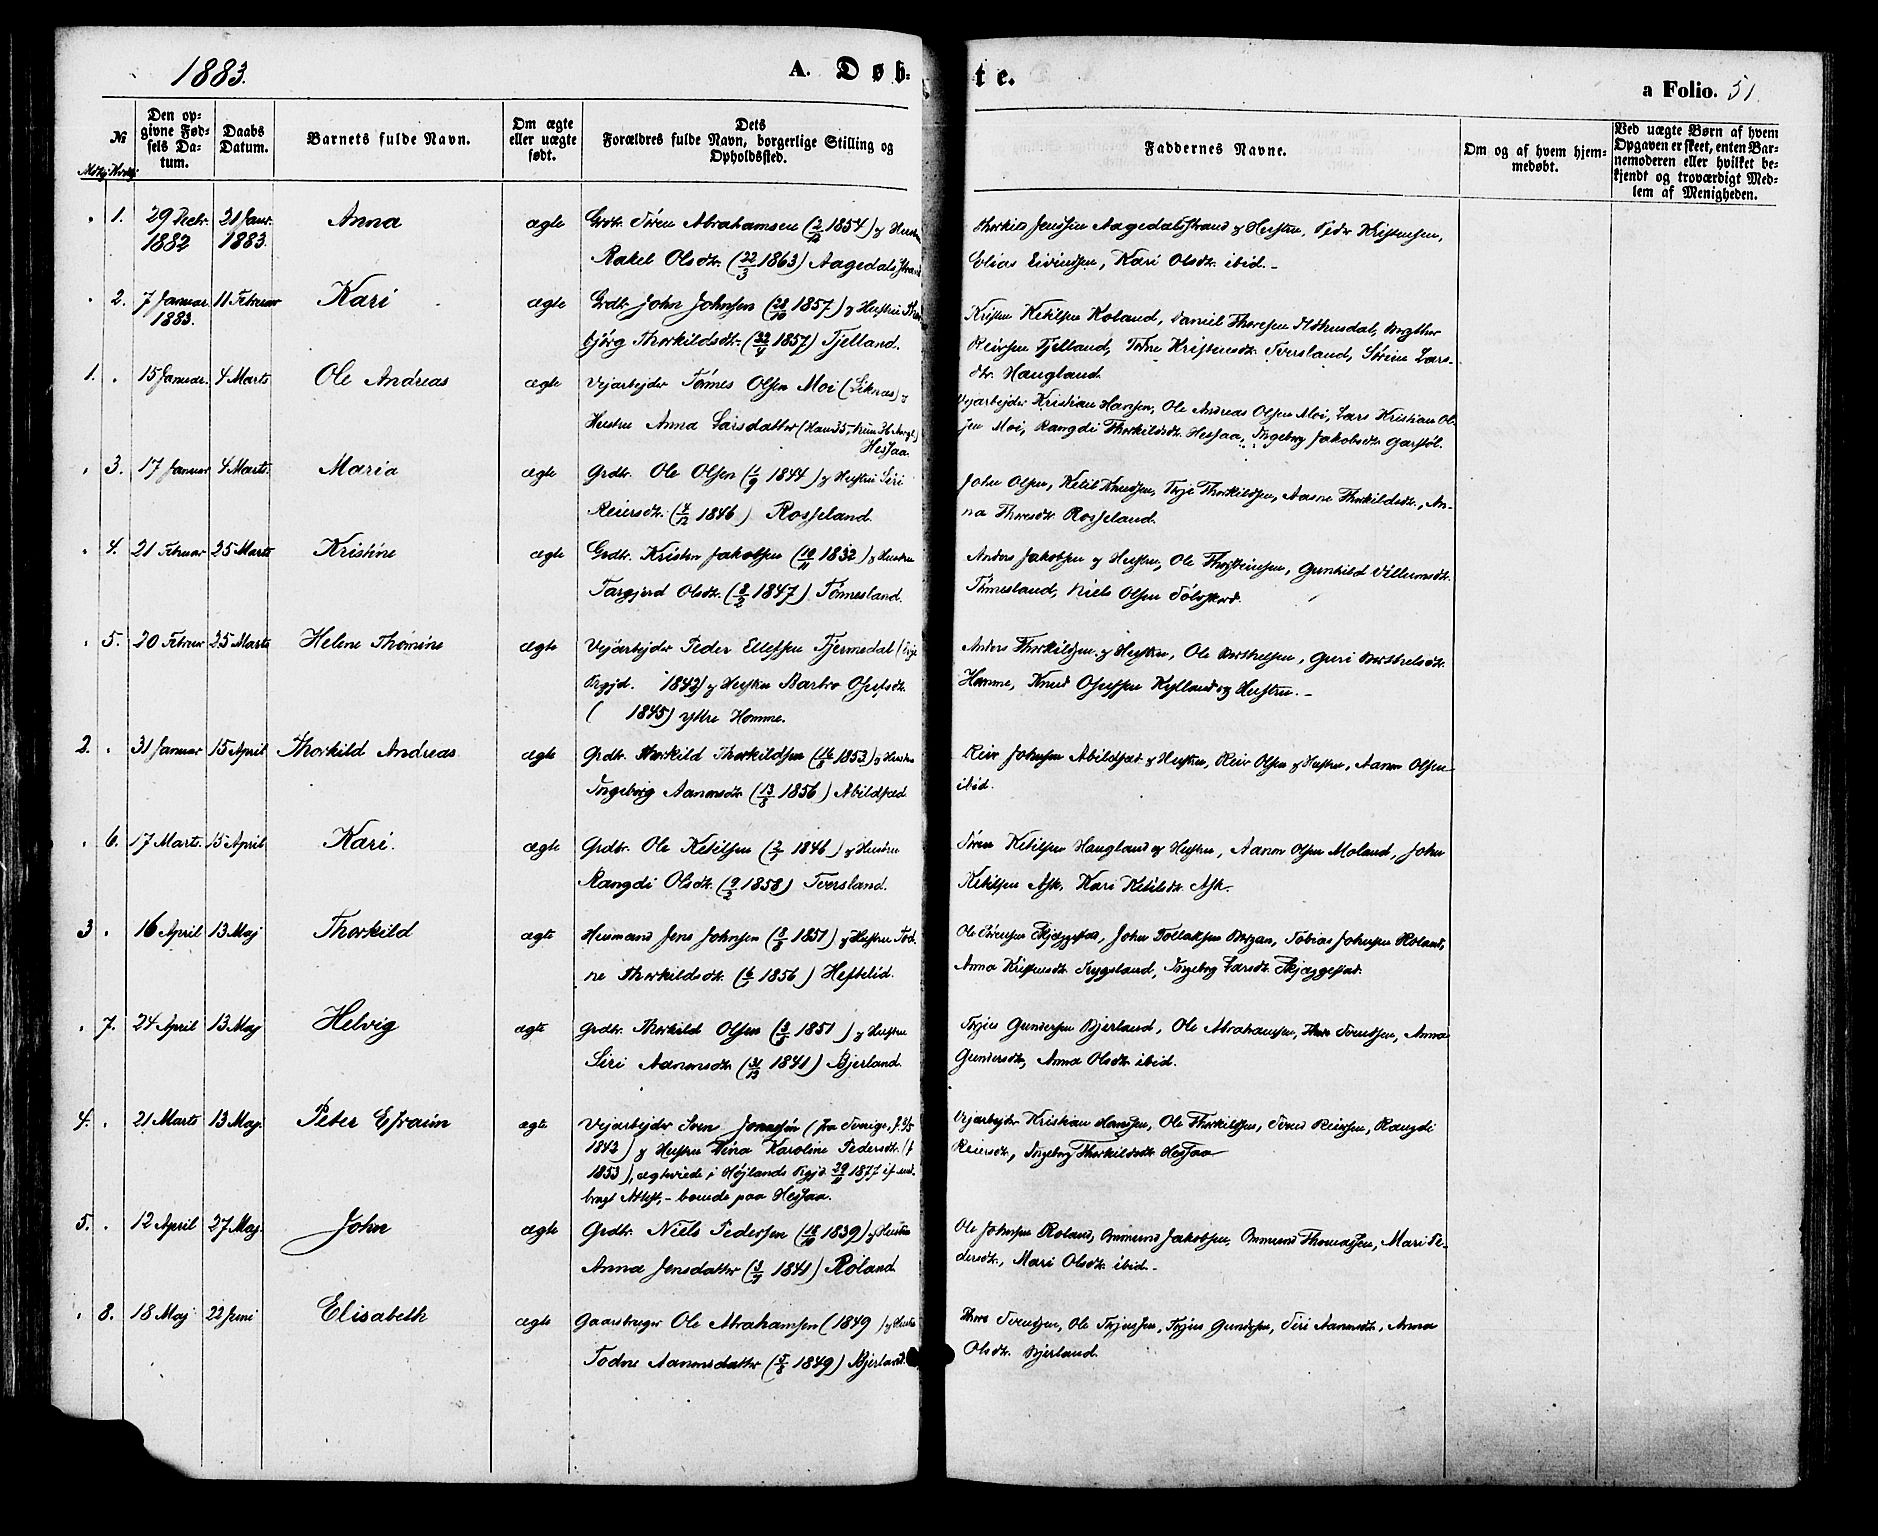 1883.
A. Døb-
te.
a Folio. 51.
№
Mdkj. Kvdkj.
Den op-
givne Fød-
sels Da-
tum.
Daabs
Datum.
Barnets fulde Navn.
Om ægte
eller uægte
født.
Dets
Forældres fulde Navn, borgerlige Stilling og
Opholdssted.
Faddernes Navne.
Om og af hvem hjem-
medøbt.
Ved uægte Børn af hvem
Opgaven er skeet, enten Bar-
nemoderen eller hvilket be-
kjendt og troværdigt Med-
lem af Menigheden.
1. 29 Decbr. 21 Janr. Anna ægte Grdbr. Sören Abrahamsen (2/12 1854) og Hustru
1882 1883. Rakel Olsdtr. (22/3 1863) Aagedalsstrand
Thorkild Jenssen Aagedalsstrand og Hustru, Peder Kristensen,
Elias Eivindsen, Kari Olsdtr. ibid.-
2. 7 Januar 11 Februar Kari ægte Grdbr. John Johnsen (1857) og Hustru Thor-
1883. björg Thorkildsdtr. (22/4 1857) Fjelland.
Kristen Ketilsen Roland, Daniel Thoresen
Reiersen Fjelland, Tone Kristensdtr. Tversland, Sörine Lars-
dtr. Haugland.
1. 15 Januar. 4 Marts Ole Andreas ægte Vejarbejder Tönnes Olsen Moi (Siknæs) og
Hustru Anna Larsdatter
Hessaa.
Vejarbejder Kristian Hansen, Ole Andreas Olsen Moi, Lars Kristian Ol-
sen Moi, Rangdi Thorkildsdtr. Hessaa, Ingeborg Jakobsdtr. Garstöl.
3. 17 Januar 4 Marts. Maria ægte Grdbr. Ole Olsen (1/9 1844) og Hustru Siri
Reiersdtr. (1846) Rosseland.
John Olsen, Ketil Knudsen, Terje Thorkildsen, Aasne Thorkildsdtr., An-
na Thoresdtr. Rosseland.
4. 21 Februar 25 Marts Kristine ægte Grdbr. Kristen Jakobsen (19/11 1832) og Hustru
Targjerd Olsdtr. (2/2 1847) Tönnesland.
Anders Jakobsen og Hustru, Ole Thorsteinsen, Gunhild Villumsdtr.
Tönnesland, Niels Olsen
5. 20 Februar 25 Marts Helene Thomine ægte Vejarbejder Peder Ellefsen Fjermedal (Evje
Prgjd. 1842) og Hustru Barbro Osufsdtr.
( 1845) Yttre Homme.
Anders Thorkildsen og Hustru, Ole Berthelsen, Guri Berthelsdtr.
Homme, Knud Osufsen Kylland og Hustru.-
2. 31 Januar 15 April Thorkild Andreas ægte Grdbr. Thorkild Thorkildsen (16/8 1853) og Hustru
Ingeborg Aanonsdtr. (13/8 1856) Abildsæd
Reier Johnsen Abildsæd og Hustru, Reier Olsen og Hustru, Aanon Olsen
ibid.
6. 17 Marts. 15 April Kari. ægte Grdbr. Ole Ketilsen (1846) og Hustru
Rangdi Olsdtr. (9/2 1858) Tversland.
Sören Ketilsen Haugland og Hustru, Aanon Olsen Moland, John
Ketilsen Ask, Kari Ketilsdtr. Ask.
3. 16 April 13 Maj Thorkild ægte Husmand Jens Johnsen (1851) og Hustru Tod-
ne Thorkildsdtr. (1856) Heftelid.
Ole Sörensen Skjæggestad, John Tollaksen Bergan, Tobias Johnsen Roland,
Anna Kristensdtr. Trygsland, Ingeborg Larsdtr. Skjæggestad.
7. 24 April 13 Maj Helvig ægte Grdbr. Thorkild Olsen (1851) og Hustru
Siri Aanonsdtr. (31/12 1841) Bjerland.
Terjus Gundersen Bjerland, Ole Abrahamsen, Thore Svendsen, Anna
Gundersdtr., Anna Olsdtr. ibid.
4. 21 Marts 13 Maj. Peter Efraim ægte Vejarbejder Sven Jonassön (fra Sverige, f.
1842) og Hustru Vina Karoline Pedersdtr. (f.
1853), ægteviede i Höjlands Prgjd. 29/11 1877 if. ind-
bragt Attest, - boende paa Hessaa.
Vejarbejder Kristian Hansen, Ole Thorkildsen, Svend Reiersen, Rangdi
Reiersdtr., Ingeborg Thorkildsdtr. Hessaa
5. 12 April 27 Maj. John ægte Grdbr. Niels Pedersen (18/10 1839) og Hustru
Anna Jensdatter (3/7 1841) Roland.
Ole Johnsen Roland, Ommund Jakobsen, Ommund Thomassen, Mari Pe-
dersdtr., Mari Olsdtr. ibid.-
8. 18 Maj 22 Juni Elisabeth ægte Gaardbruger Ole Abrahamsen (1849 ) og Hustru
Todne Aanonsdatter (1849) Bjerland.
Thore Svendsen, Ole Terjussen, Terjus Gundersen, Siri Aanonsdtr., Anna
Olsdtr. Bjerland.